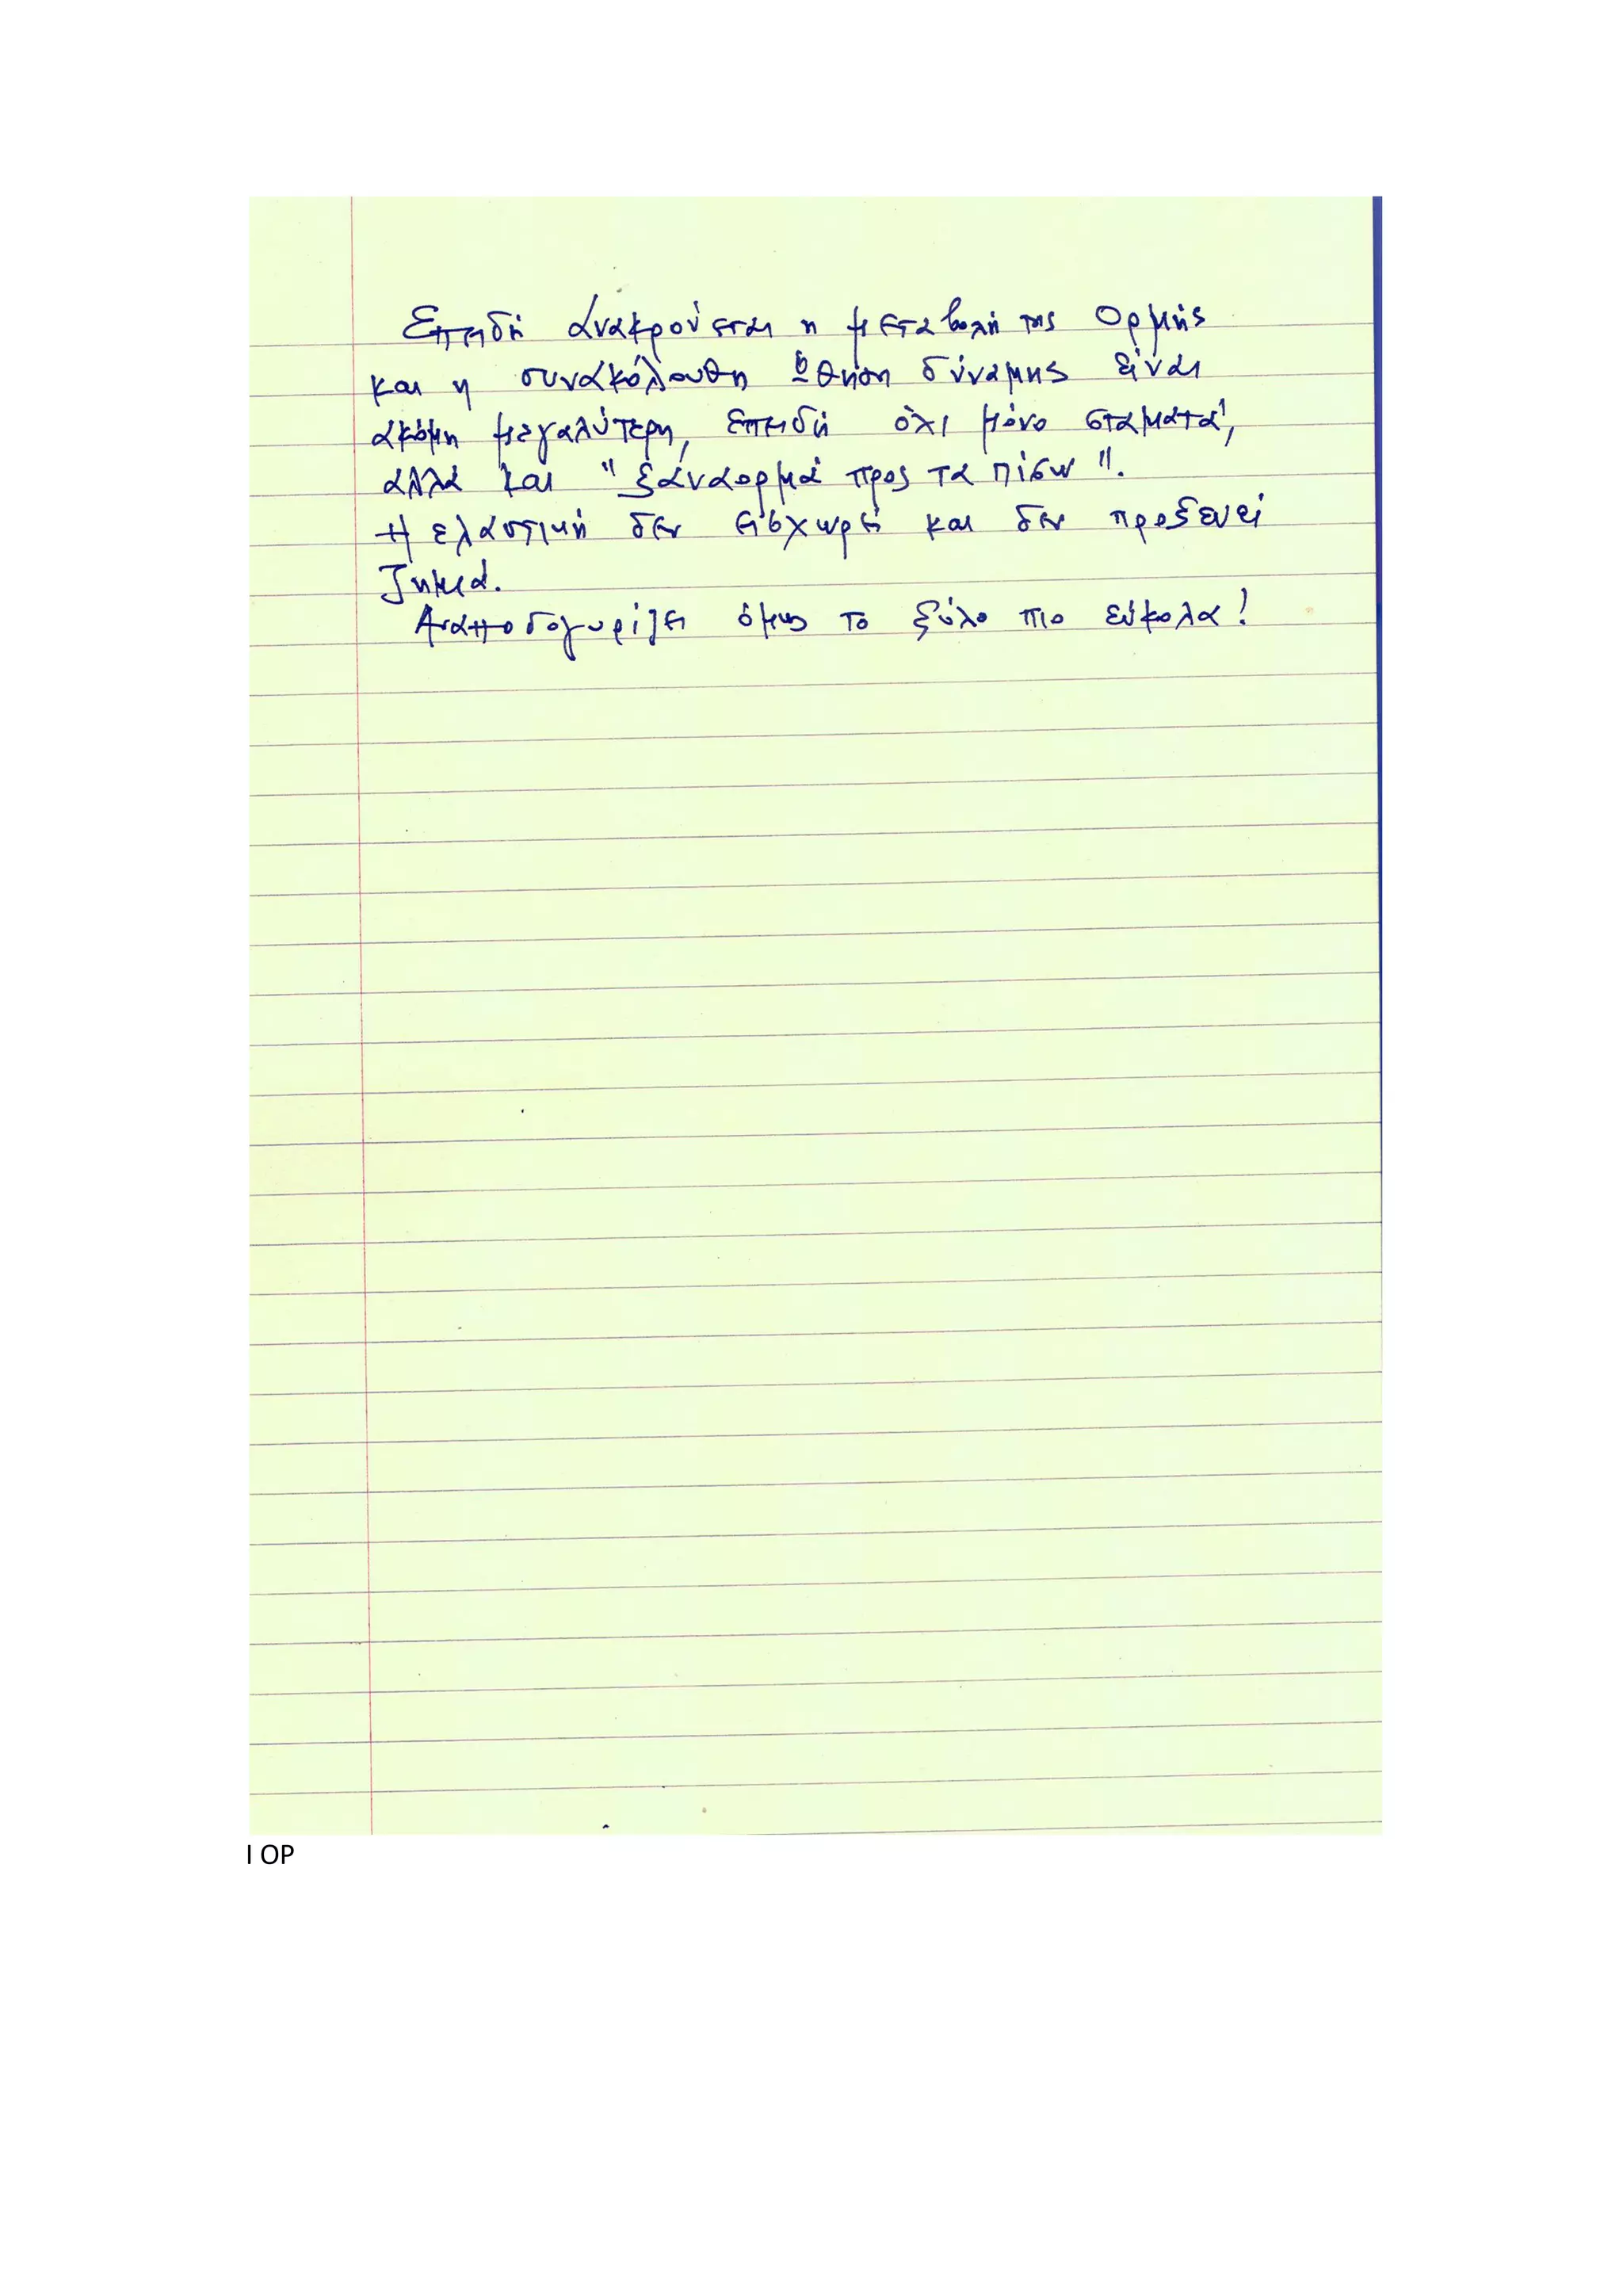 Επειδή ανακρούεται η μεταβολή της Ορμής
και η συνακόλουθη ώθηση δύναμης είναι
ακόμη μεγαλύτερη, επειδή όχι μόνο σταματά,
αλλά και "ξαναορμά προς τα πίσω".
Η ελαστική δεν εισχωρεί και δεν προξενεί
ζημιά.
Αναποδογυρίζει όμως το ξύλο πιο εύκολα!
Ι ΟΡ